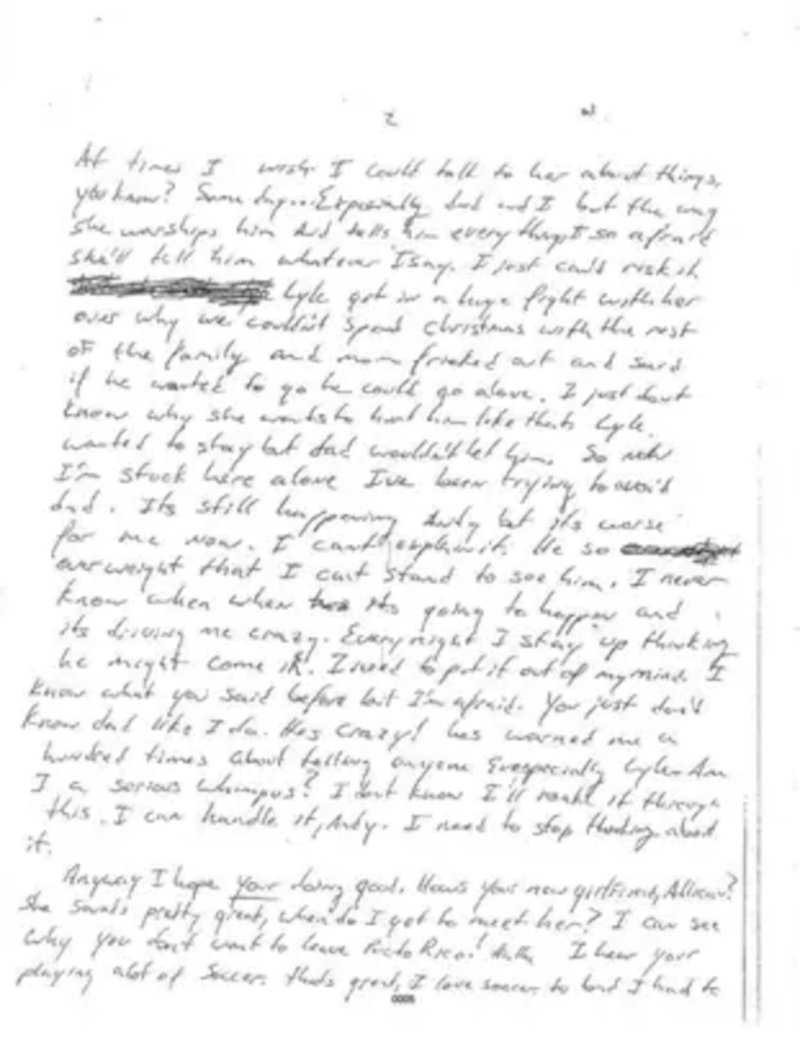 2
At times I wish I could talk to her about things,
you know? Some day... Especially dad and I but the way
she worships him and tells him everything I so afraid
she'll tell him whatever I say. I just can't risk it
Lyle got in a huge fight with her
over why we couldn't spend Christmas with the rest
of the family and mom freaked out and said
if he wanted to go he could go alone. I just dont
know why she wants to hurt him like that. Lyle
wanted to stay but dad wouldn't let him. So now
I'm stuck here alone I've been trying to avoid
dad. Its still happening Andy but its worse
for me now. I can't explain it. He so
overweight that I cant stand to see him. I never
know when when its going to happen and
its driving me crazy. Every night I stay up thinking
he might come in. I need to put it out of my mind. I
know what you said before but I'm afraid. You just don't
know dad like I do. Hes crazy! hes warned me a
hundred times about telling anyone Especially Lyle. Am
I a serious whimpus? I dont know I'll make it through
this. I can handle it, Andy. I need to stop thinking about
it.
Anyway I hope your doing good. Hows your new girlfriend, Allison?
She sounds pretty great, when do I get to meet her? I can see
why you dont want to leave Puerto Rico! I hear your
playing alot of soccer. thats great, I love soccer to but I had to
0005